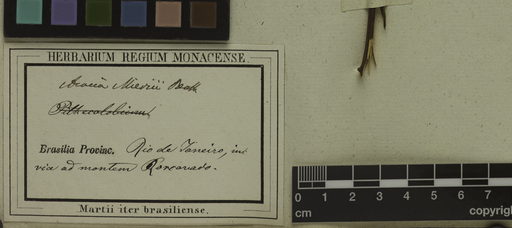 HERBARIUM REGIUM MONACENSE.
Acacia Miersii Benth
Pithecolobium
Brasilia Provinc. Rio de Janeiro, in
via ad montem Korcovado.
Martii iter brasiliense.
0 1 2 3 4 5 6 7
cm copyrig